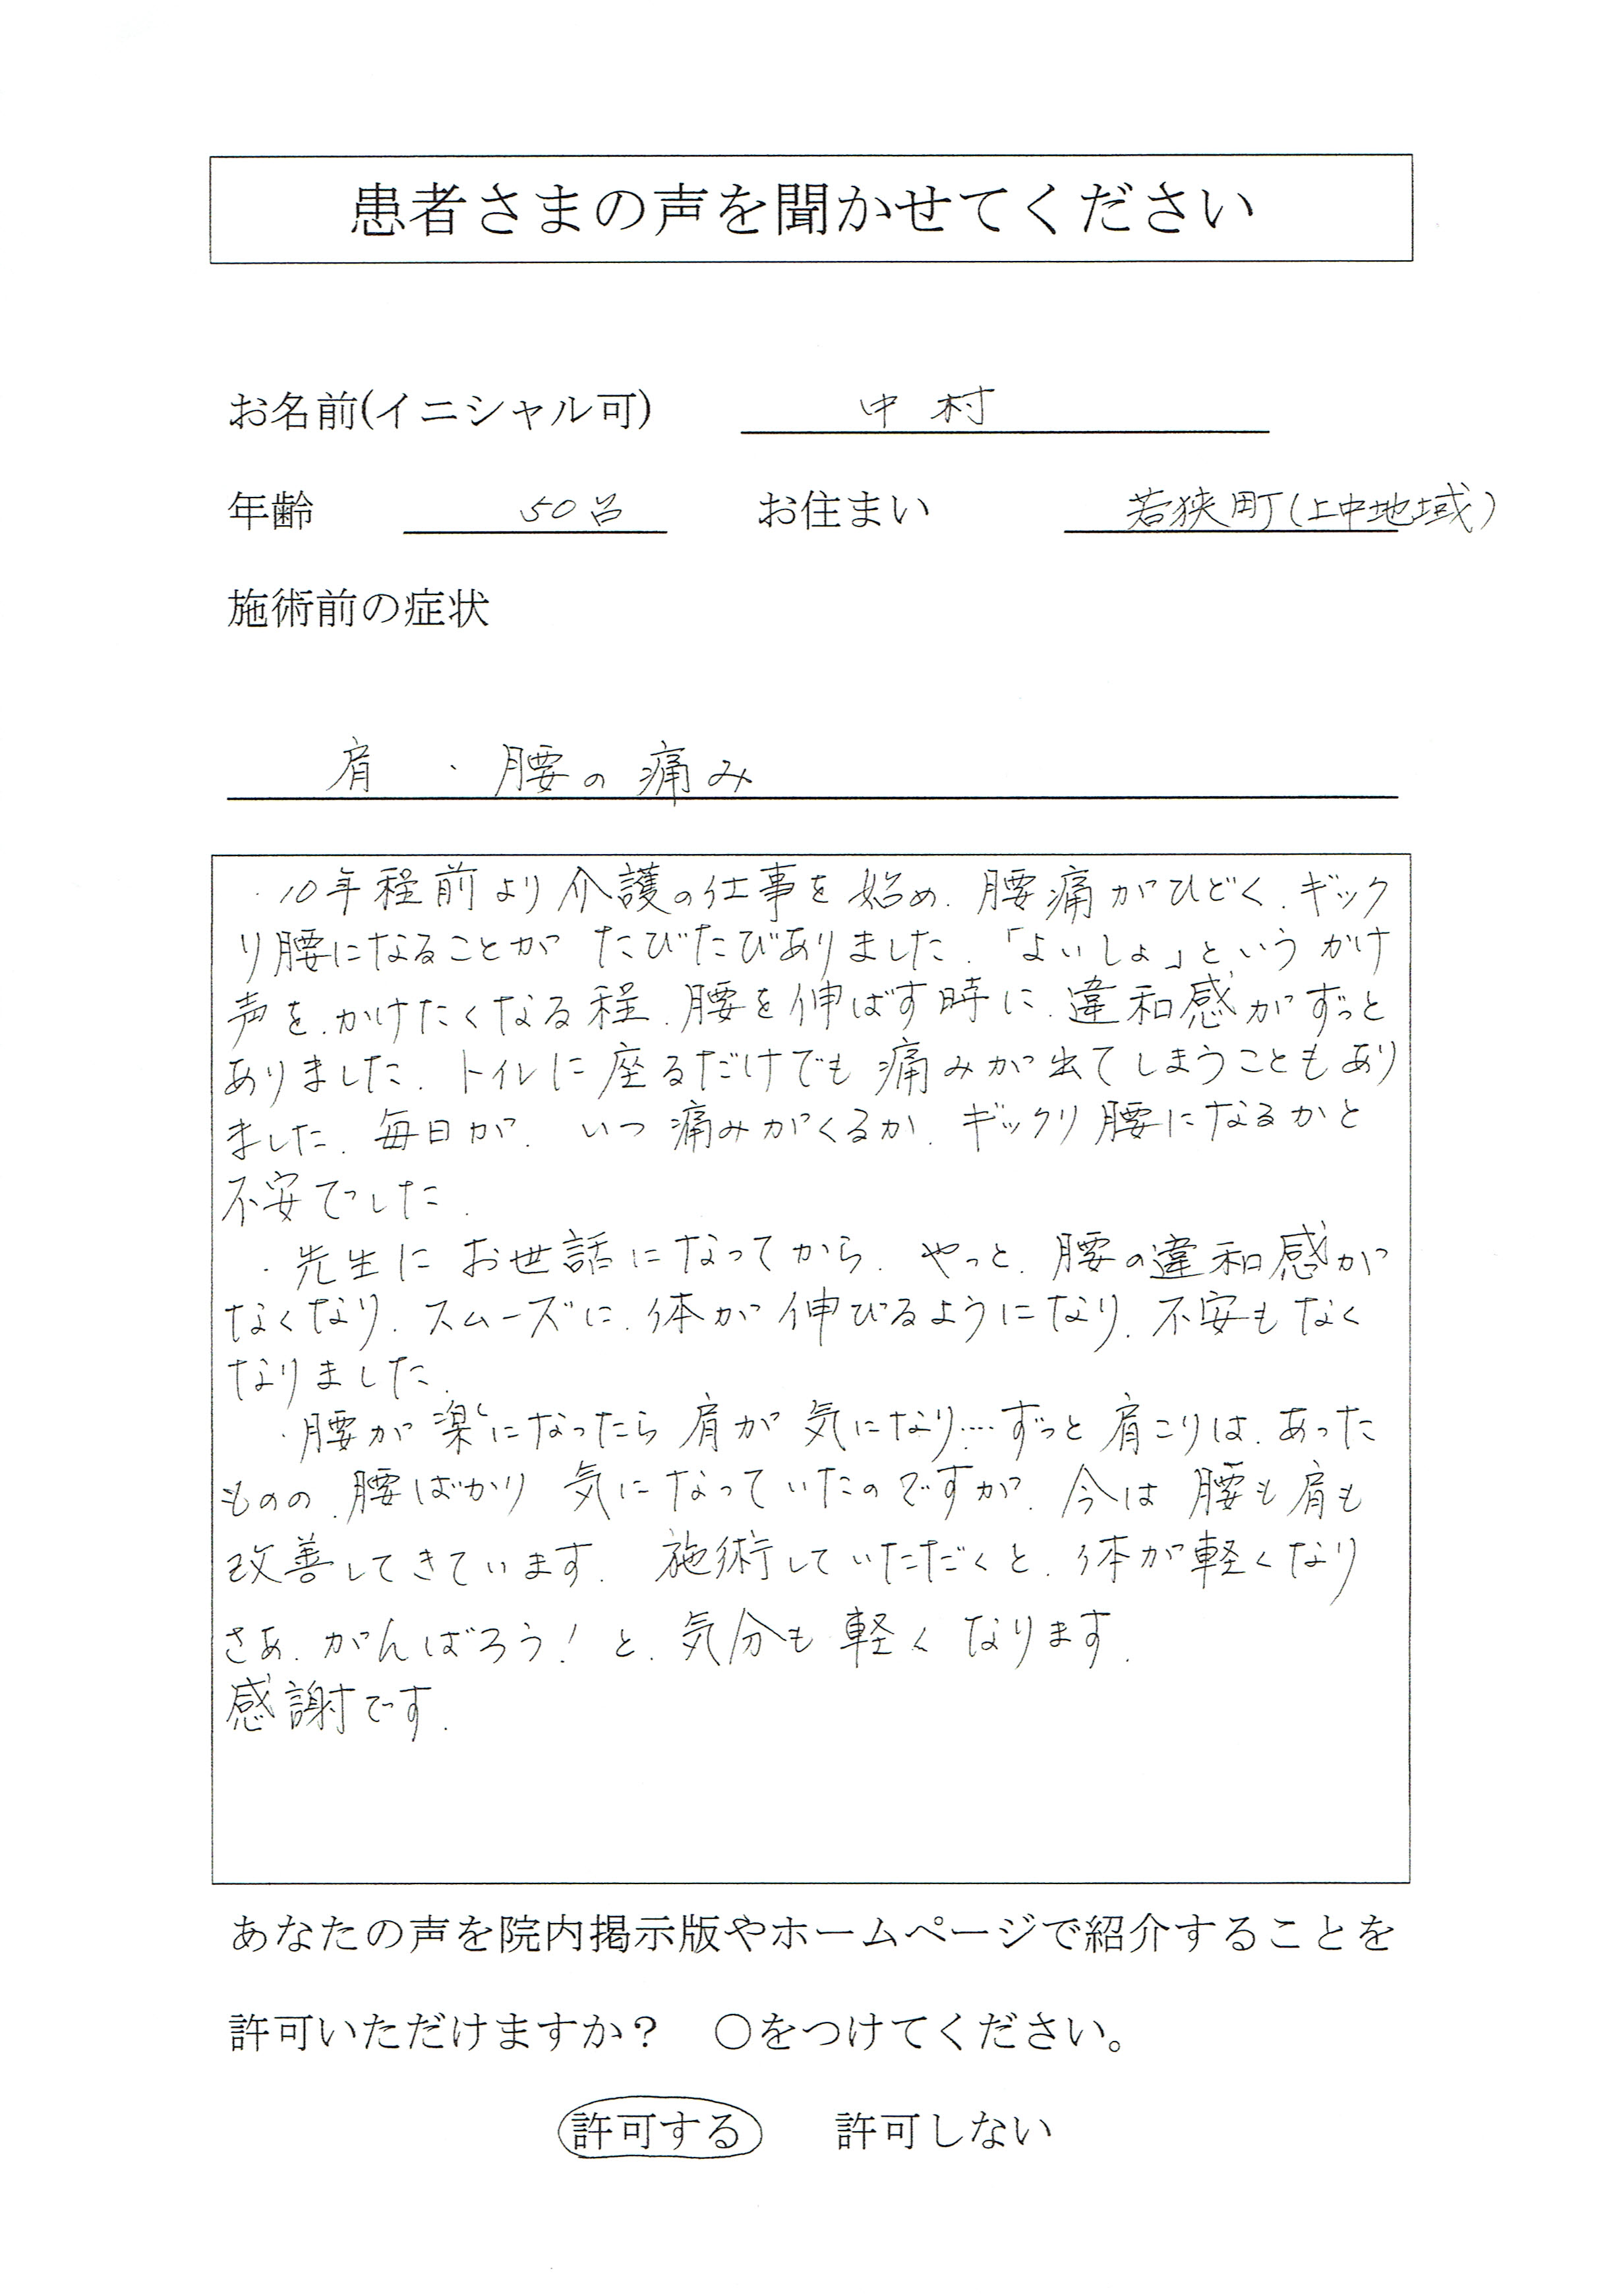 患者さまの声を聞かせてください
お名前(イニシャル可) 中村
年齢 50台 お住まい 若狭町(上中地域)
施術前の症状
肩・腰の痛み
・10年程前より介護の仕事を始め、腰痛がひどく、ギック
リ腰になることが たびたびありました。「よいしょ」という かけ
声を、かけたくなる程、腰を伸ばす時に、違和感がずっと
ありました。トイレに座るだけでも痛みが出てしまうこともあり
ました。毎日が、いつ痛みがくるか、ギックリ腰になるかと
不安でした。
・先生にお世話になってから、やっと、腰の違和感が
なくなり、スムーズに、体が伸びるようになり、不安もなく
なりました。
・腰が楽になったら肩が気になり…ずっと肩こりは、あった
ものの、腰ばかり気になっていたのですが、今は腰も肩も
改善してきています。施術していただくと、体が軽くなり
さあ、がんばろう!と、気分も軽くなります。
感謝です。
あなたの声を院内掲示版やホームページで紹介することを
許可いただけますか? ○をつけてください。
許可する 許可しない